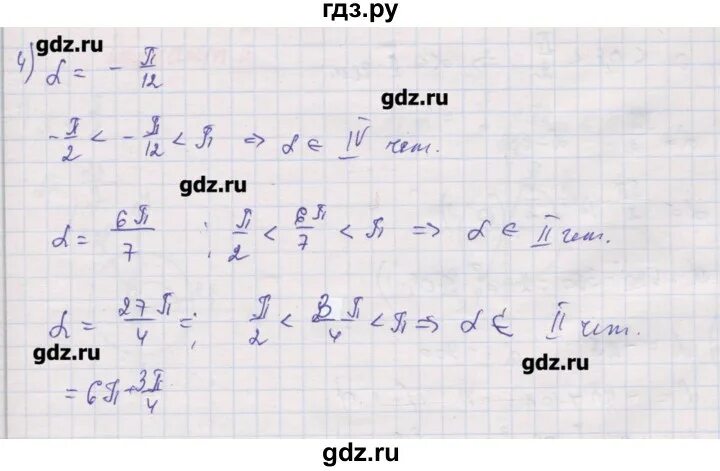 гдз.ру
gdz.ru
4) α = - π/12
gdz.ru
-π/2 < - π/12 < π ⇒ α ∈ IV чет.
gdz.ru
α = 6π/7 ; π/2 < 6π/7 < π ⇒ α ∈ II чет.
α = 27π/4 = ; π/2 < 3π/4 < π ⇒ α ∈ II чет.
gdz.ru
gdz.ru
= 6π + 3π/4
gdz.ru